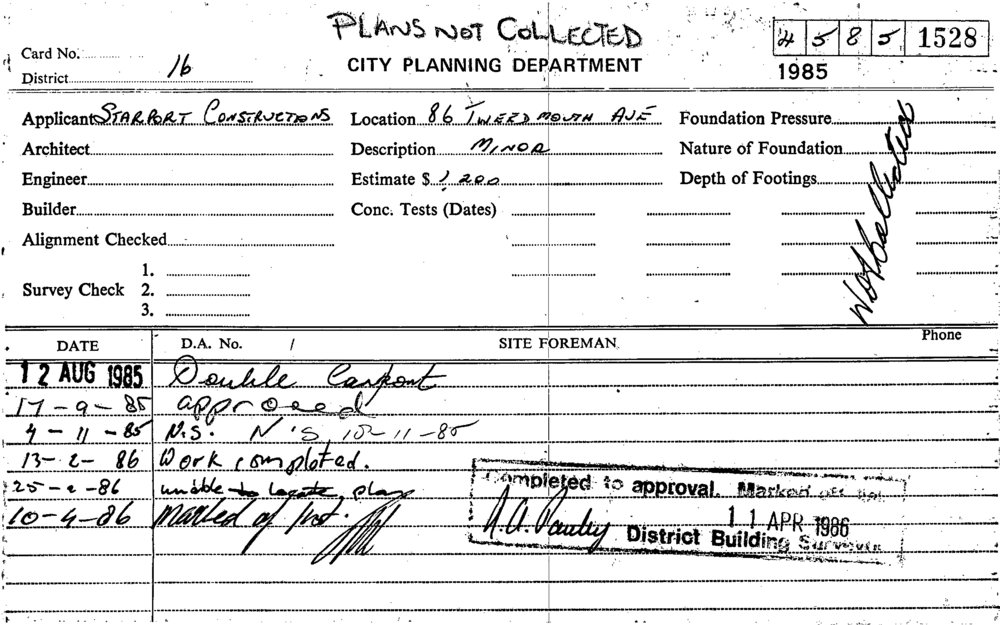 PLANS NOT COLLECTED
4 5 8 5 1528
Card No.
CITY PLANNING DEPARTMENT
1985
District 16
Applicant STARPORT CONSTRUCTIONS Location 86 TWEEDMOUTH AVE Foundation Pressure
Architect Description MINOR Nature of Foundation
Engineer Estimate $ 1,200 Depth of Footings
Builder Conc. Tests (Dates)
Alignment Checked
1.
Survey Check 2.
3.
Not Collected
DATE D.A. No. / SITE FOREMAN Phone
12 AUG 1985 Double Carport
17-9-85 approved
4-11-85 N.S. N'S, 10-11-85
13-2-86 Work completed.
25-2-86 unable to locate plans
10-4-86 marked of
Completed to approval. Marked off
11 APR 1986
District Building Surveyor